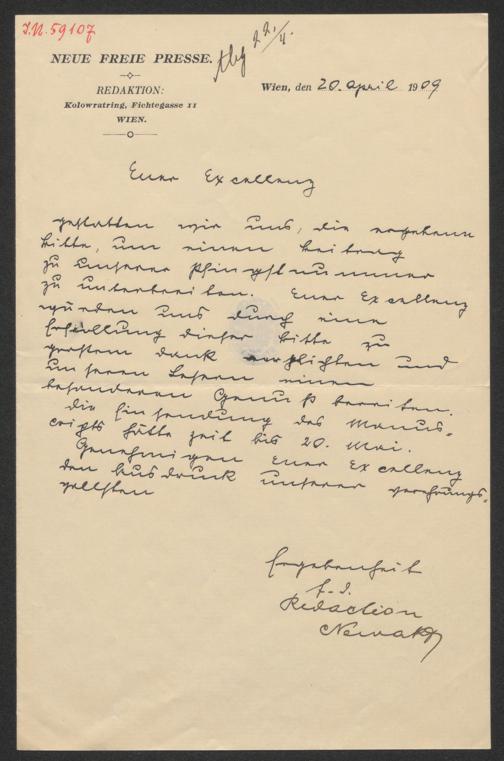 I.N. 59107
NEUE FREIE PRESSE.
22./4.
REDAKTION:
Kolowratring, Fichtegasse 11
WIEN.
Wien, den 20. April 1909
Euer Excellenz
gestatten wir uns, die ergebene
Bitte, um einen Beitrag
zu unserer Pfingstnummer
zu unterbreiten. Euer Excellenz
würden uns durch eine
Erfüllung dieser Bitte zu
großem Dank verpflichten und
unseren Lesern einen
besonderen Genuß bereiten.
Die Einsendung des Manus-
cripts hätte Zeit bis 20. Mai.
Genehmigen Euer Excellenz
den Ausdruck unserer verehrungs-
vollsten
Ergebenheit
f. d.
Redaction